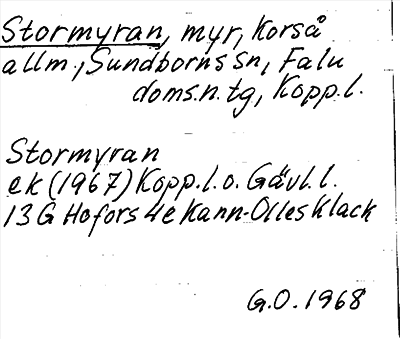 Stormyran, myr, Korså
allm., Sundborns sn, Falu
doms.n. tg, Kopp. l.
Stormyran
ek (1967) Kopp. l. o. Gävl. l.
13 G Hofors 4e Kann-Olles Klack
G.O. 1968